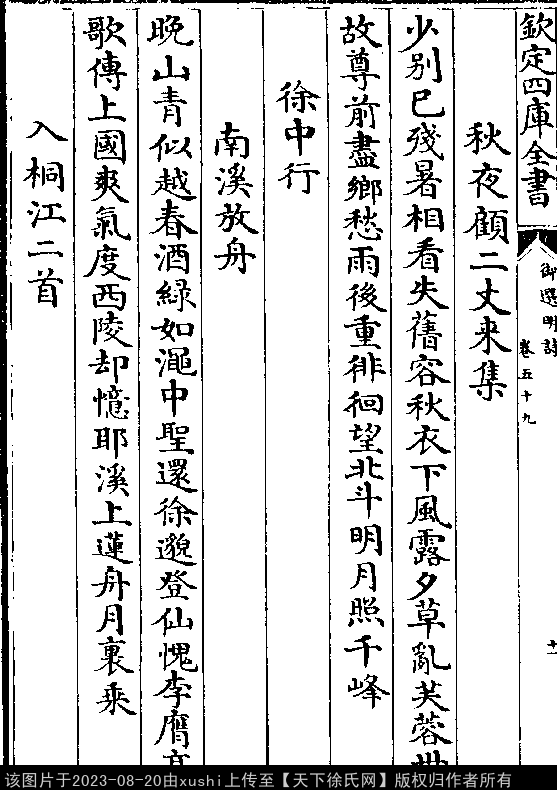 欽定四庫全書
御選明詩
卷五十九
十一
秋夜顧二丈来集
少别已殘暑相看失舊容秋衣下風露夕草亂芙蓉
故尊前盡鄉愁雨後重徘徊望北斗明月照千峰
徐中行
南溪放舟
晚山青似越春酒緑如澠中聖還徐邈登仙愧李膺
歌傳上國爽氣度西陵却憶耶溪上蓮舟月裏乘
入桐江二首
该图片于2023-08-20由xushi上传至【天下徐氏网】版权归作者所有